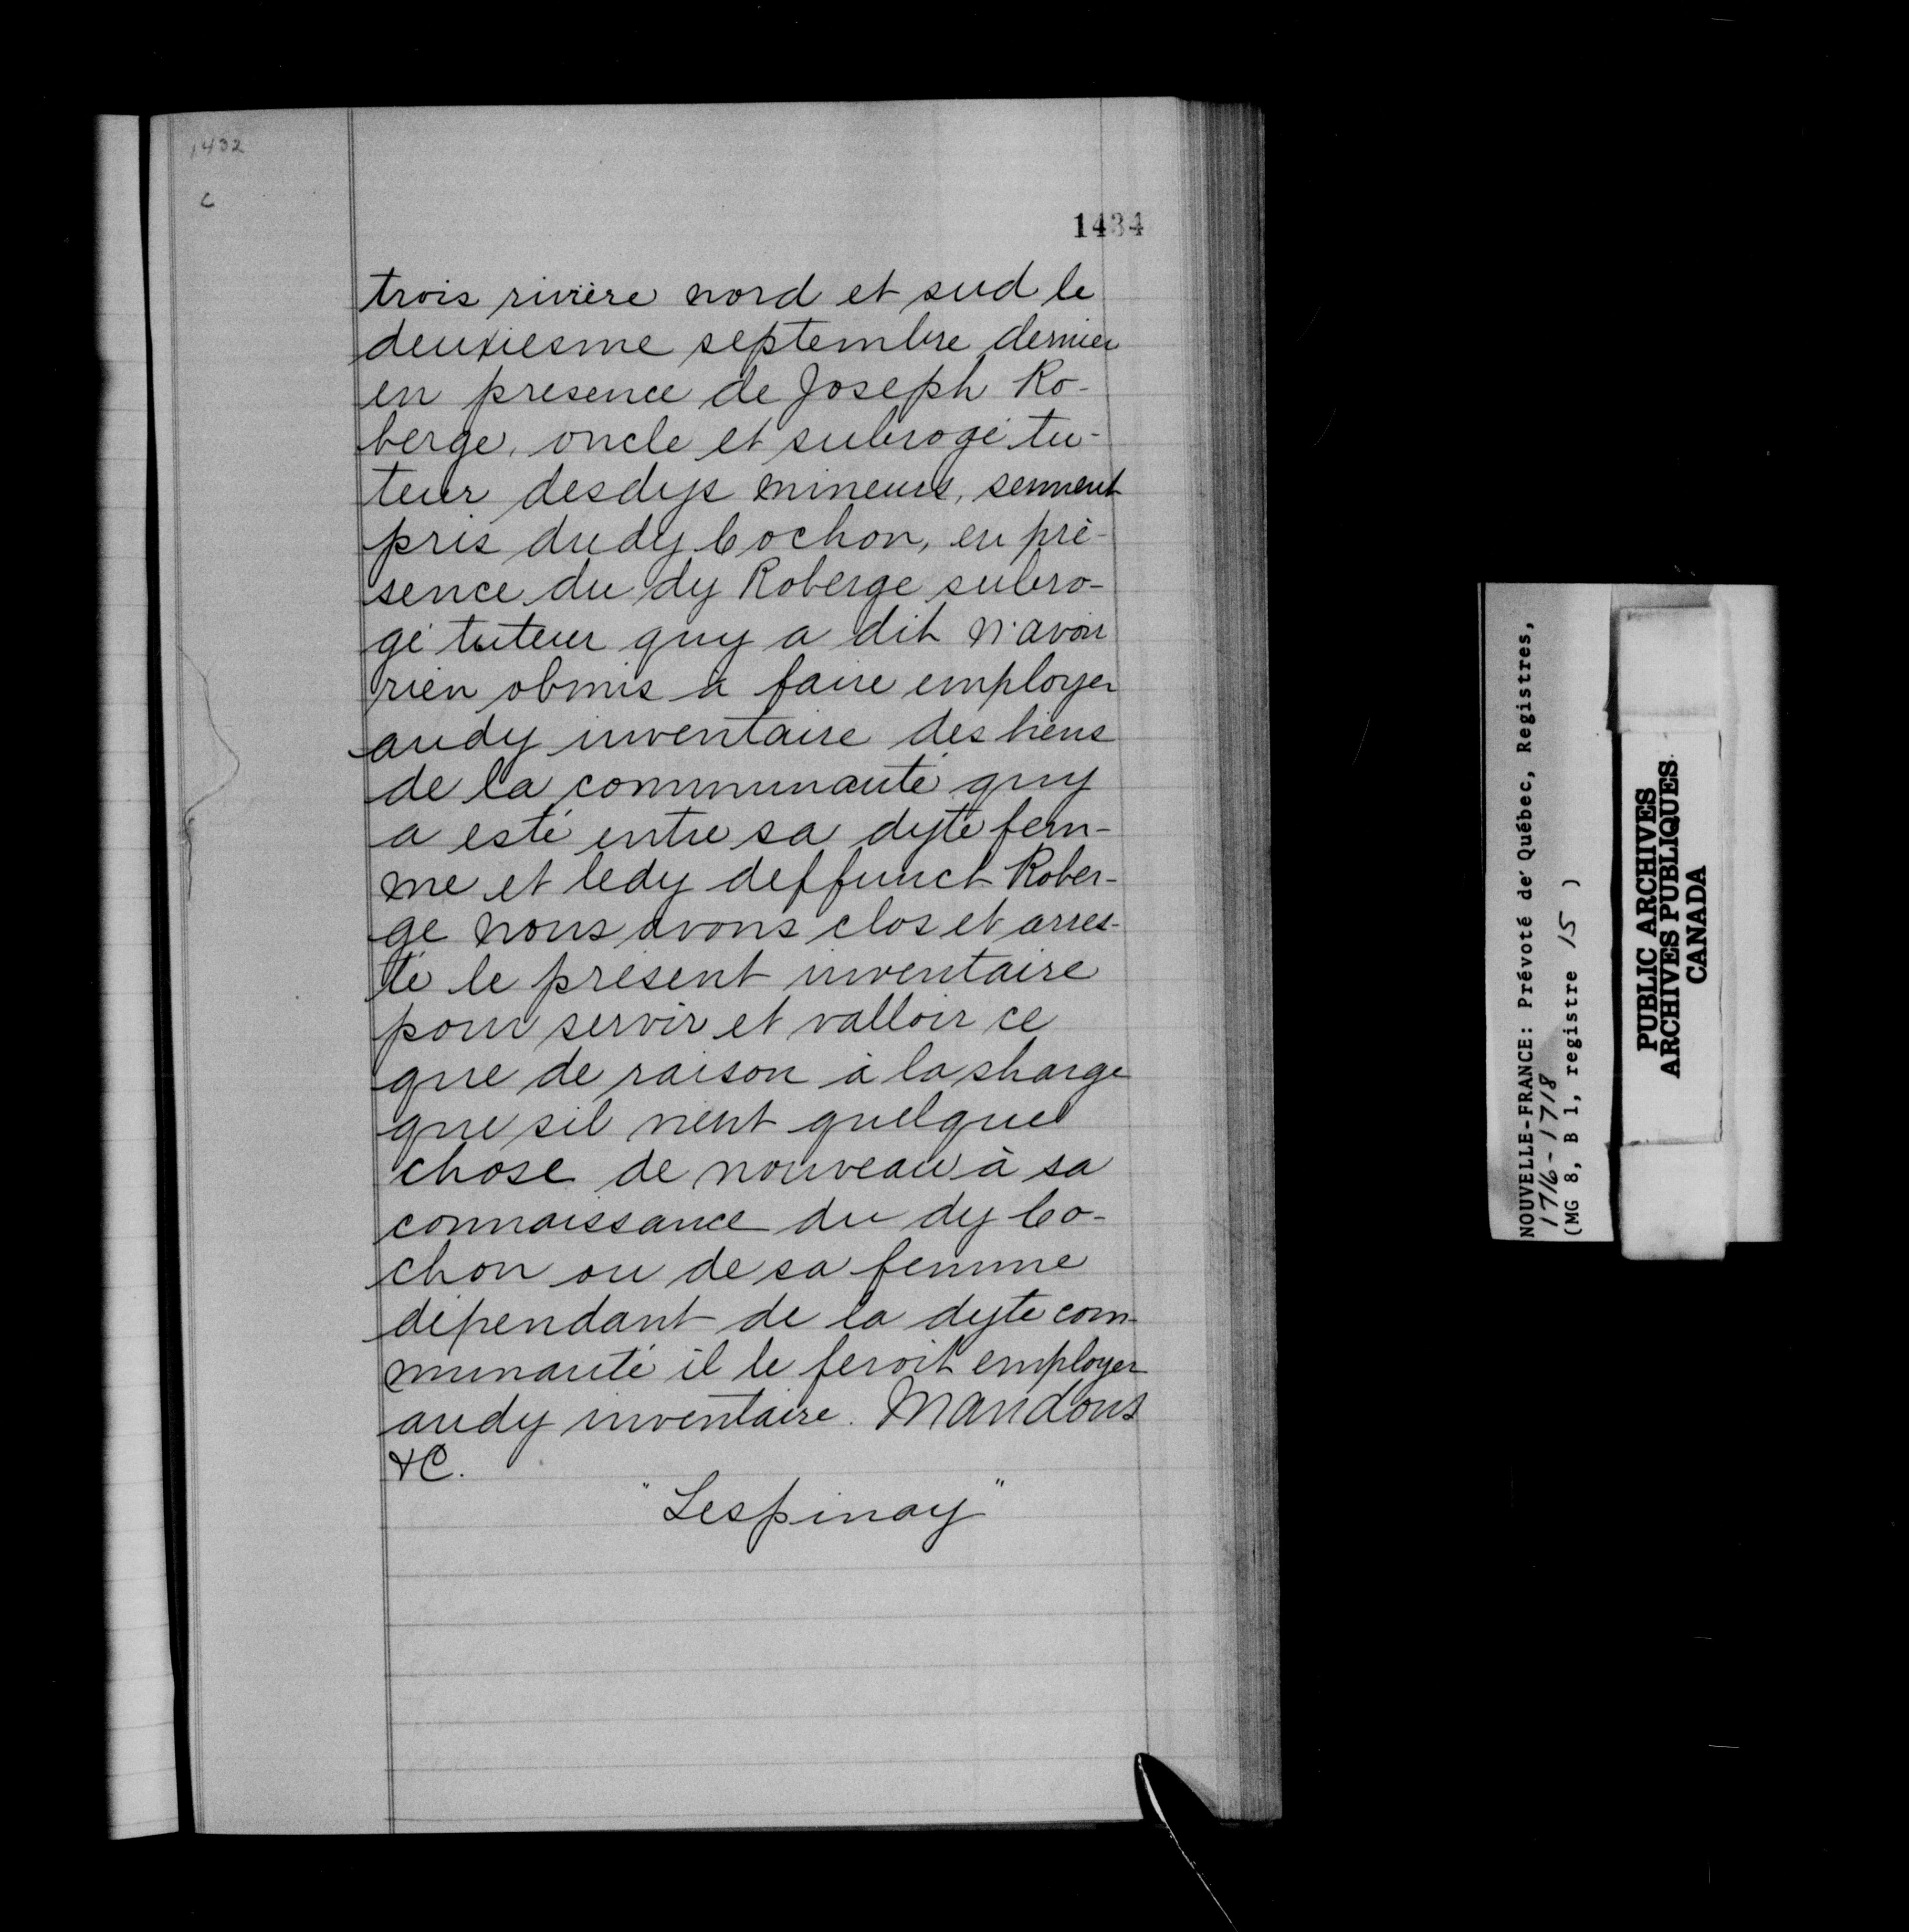 1432
c
1434
trois rivière nord et sud le
deuxiesme septembre dernier
en presence de Joseph Ro-
berge, oncle et subrogé tu-
teur desdys mineurs, serment
pris dudy Cochon, en pré-
sence du dy Roberge subro-
gé tuteur quy a dit n'avoir
rien obmis à faire employer
audy inventaire des biens
de la communauté quy
a esté entre sa dyte fem-
me et ledy deffunct Rober-
ge nous avons clos et arres-
té le présent inventaire
pour servir et valloir ce
que de raison à la sharge
que sil vient quelque
chose de nouveau à sa
connaissance du dy Co-
chon ou de sa femme
dépendant de la dyte com-
munauté il le feroit employer
audy inventaire. Mandons
&C.
"Lespinay"
NOUVELLE-FRANCE: Prévoté de Québec, Registres,
1716-1718
(MG 8, B 1, registre 15 )
PUBLIC ARCHIVES
ARCHIVES PUBLIQUES
CANADA